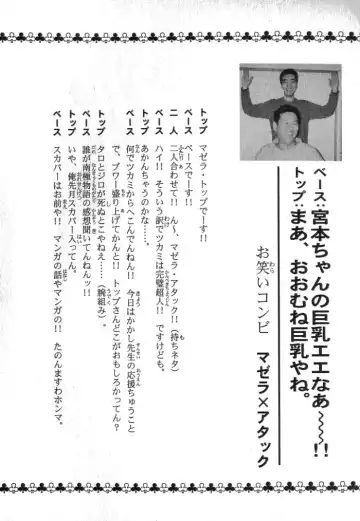 ベース:宮本ちゃんの巨乳エエなあ〜〜!!
トップ:まあ、おおむね巨乳やね。
お笑いコンビ マゼラ×アタック
トップ マゼラ・トップでーす!!
ベース ベースでーす!!
二人 二人合わせて!! ん〜、マゼラ・アタック!!(持ちネタ)
ベース ハイ!! そういう訳でツカミは完璧超人!! ですけども。
トップ あかんちゃうのかな……。
ベース 何でツカミからへこんでんねん!! 今日はかかし先生の応援ちゅうこと
で、ブワー盛り上げてかんと!! トップさんどこがおもしろかってん?
トップ タロとジロが死ぬとこやねえ……(腕組み)。
ベース 誰が南極物語の感想聞いてんねんッ!!
トップ いや、俺先月スカパー入ってん。
ベース スカパーはお前や!! マンガの話やマンガの!! たのんますわホンマ。